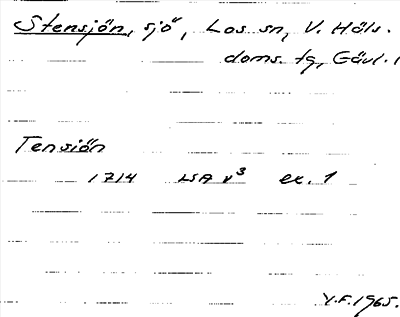 Stensjön, sjö, Los sn, V. Häls.
doms. tg, Gävl. l
Tensiön
1714 LSA v³ ex. 1
Y.F. 1965.